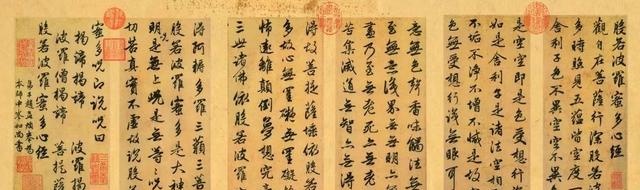 般若波羅蜜多心經
觀自在菩薩行深般若波羅
多時照見五蘊皆空度一
舍利子色不異空空不異
是空空即是色受想行
如是舍利子是諸法空相
不垢不淨不增不減是故
色無受想行識無眼耳
意無色聲香味
至無意識界無無明
盡乃至無老死亦無老
苦集滅道無智亦無得
得故菩提薩埵依般若
多故心無罣礙無罣礙
怖遠離顛倒夢想究
三世諸佛依般若波羅
得阿耨多羅三藐三菩
般若波羅蜜多是大神
明咒是無上咒是無等等咒
切苦真實不虛故說般若
蜜多咒即說咒曰
揭諦揭諦 波羅揭
波羅僧揭諦 菩提薩
般若波羅蜜多心經
弟子趙孟頫奉為
本師中峯和尚書